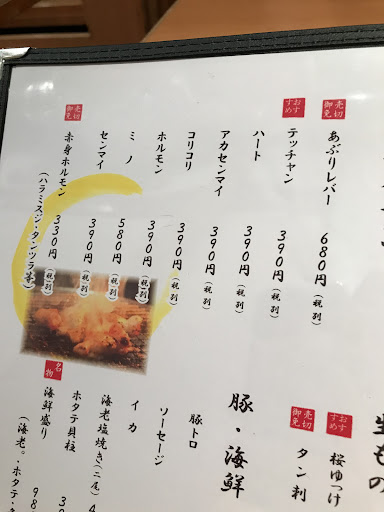 売切御免
あぶりレバー
680円(税別)
おすすめ
テッチャン
390円(税別)
ハート
390円(税別)
アカセンマイ
390円(税別)
コリコリ
390円(税別)
ホルモン
390円(税別)
ミノ
580円(税別)
センマイ
390円(税別)
売切御免
赤身ホルモン
330円(税別)
(ハラミスジ・タンツラ等)
生もの
おすすめ
桜ゆっけ
売切御免
タン刺
豚・海鮮
豚トロ
ソーセージ
イカ
海老塩焼き(二尾)
ホタテ貝柱
名物
海鮮盛り
(海老。・ホタテ・